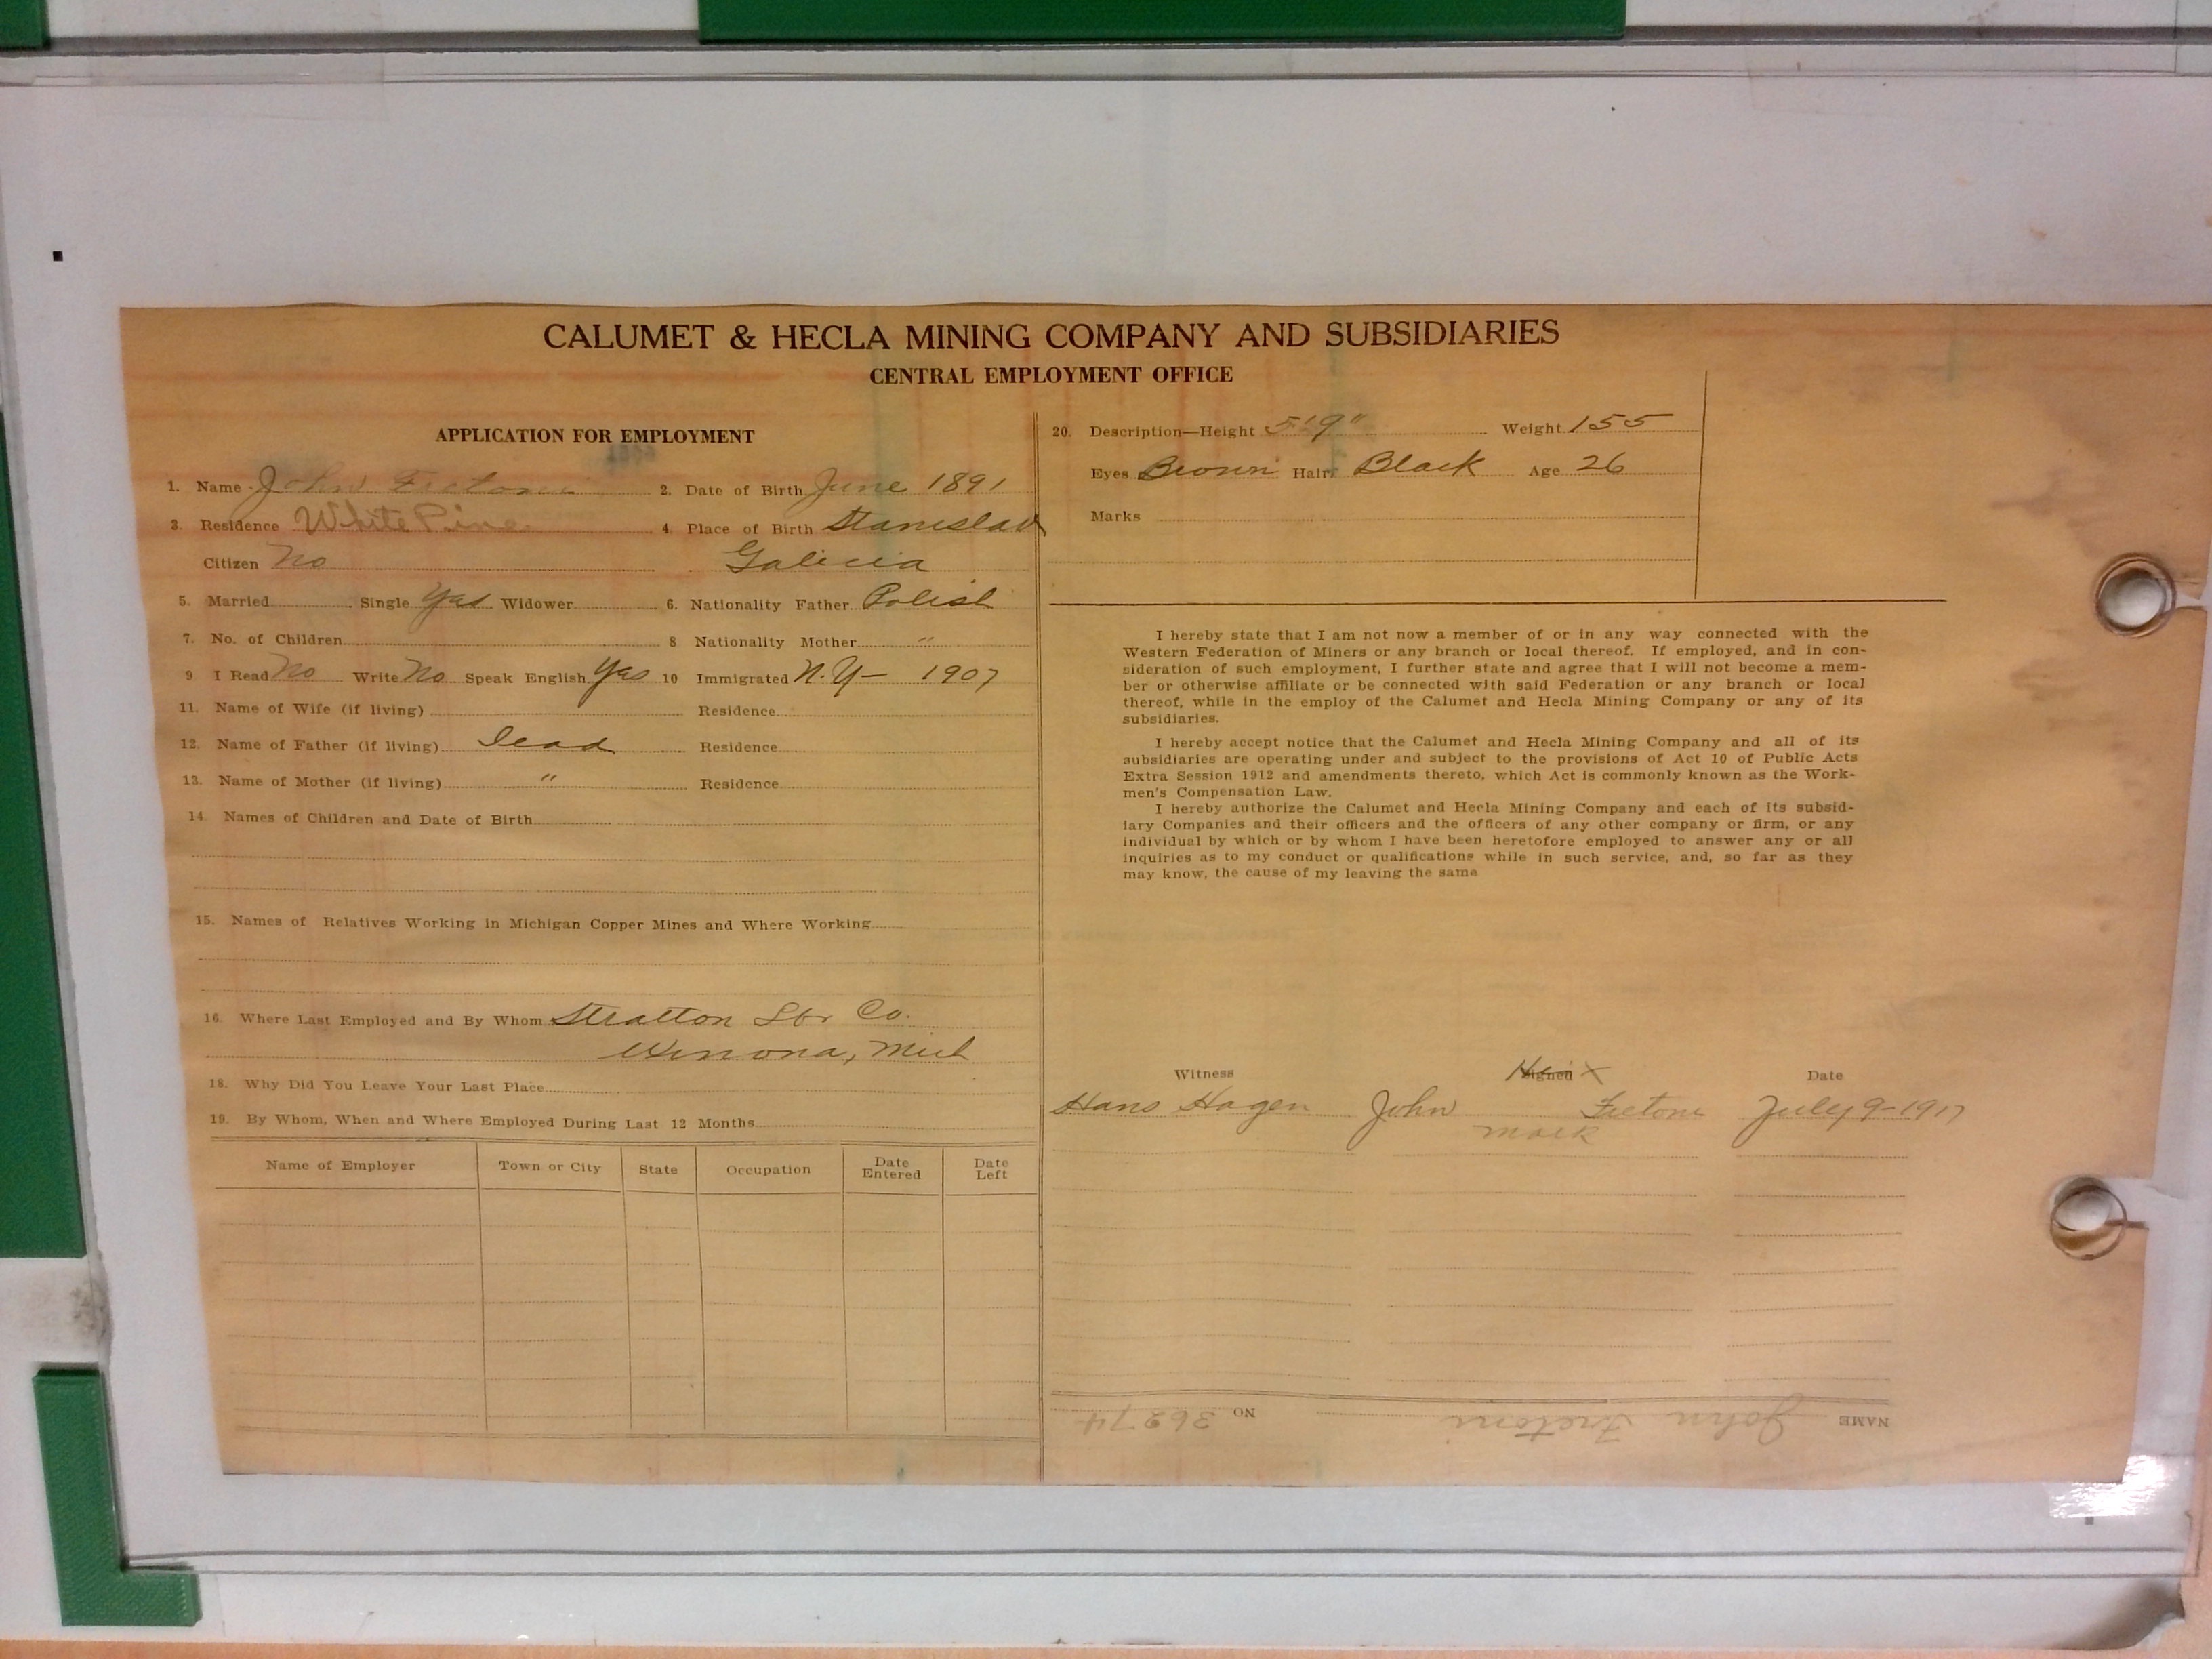 CALUMET & HECLA MINING COMPANY AND SUBSIDIARIES
CENTRAL EMPLOYMENT OFFICE
APPLICATION FOR EMPLOYMENT
1. Name John
2. Date of Birth June 1891
3. Residence White Pine
4. Place of Birth Stanislau
Citizen No
Galicia
5. Married Single Yes Widower
6. Nationality Father Polish
7. No. of Children
8 Nationality Mother "
9 I Read No Write No Speak English Yes
10 Immigrated N.Y- 1907
11. Name of Wife (if living) Residence
12. Name of Father (if living) Dead Residence
13. Name of Mother (if living) " Residence
14. Names of Children and Date of Birth
15. Names of Relatives Working in Michigan Copper Mines and Where Working
16. Where Last Employed and By Whom Stratton Lbr Co.
Winona, Mich
18. Why Did You Leave Your Last Place
19. By Whom, When and Where Employed During Last 12 Months
Name of Employer Town or City State Occupation Date Entered Date Left
20. Description—Height 5'9" Weight 155
Eyes Brown Hair Black Age 26
Marks
I hereby state that I am not now a member of or in any way connected with the
Western Federation of Miners or any branch or local thereof. If employed, and in con-
sideration of such employment, I further state and agree that I will not become a mem-
ber or otherwise affiliate or be connected with said Federation or any branch or local
thereof, while in the employ of the Calumet and Hecla Mining Company or any of its
subsidiaries.
I hereby accept notice that the Calumet and Hecla Mining Company and all of its
subsidiaries are operating under and subject to the provisions of Act 10 of Public Acts
Extra Session 1912 and amendments thereto, which Act is commonly known as the Work-
men's Compensation Law.
I hereby authorize the Calumet and Hecla Mining Company and each of its subsid-
iary Companies and their officers and the officers of any other company or firm, or any
individual by which or by whom I have been heretofore employed to answer any or all
inquiries as to my conduct or qualifications while in such service, and, so far as they
may know, the cause of my leaving the same
Witness Signed X Date
Hans Hagen John July 9-1917
mark
NAME John NO 36274